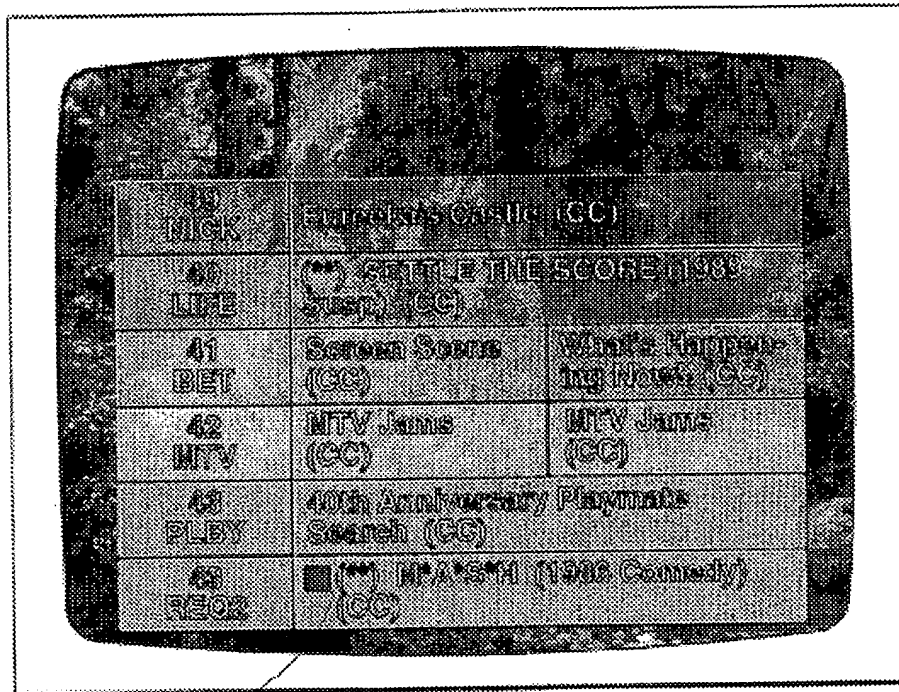 NICK
Eureeka's Castle (CC)
40
LIFE
(**) SETTLE THE SCORE (1989
Susp) (CC)
41
BET
Screen Scene
(CC)
What's Happen-
ing Now!! (CC)
42
MTV
MTV Jams
(CC)
MTV Jams
(CC)
43
PLBY
40th Anniversary Playmate
Search (CC)
45
REQ2
(**) M*A*S*H (1986 Comedy)
(CC)